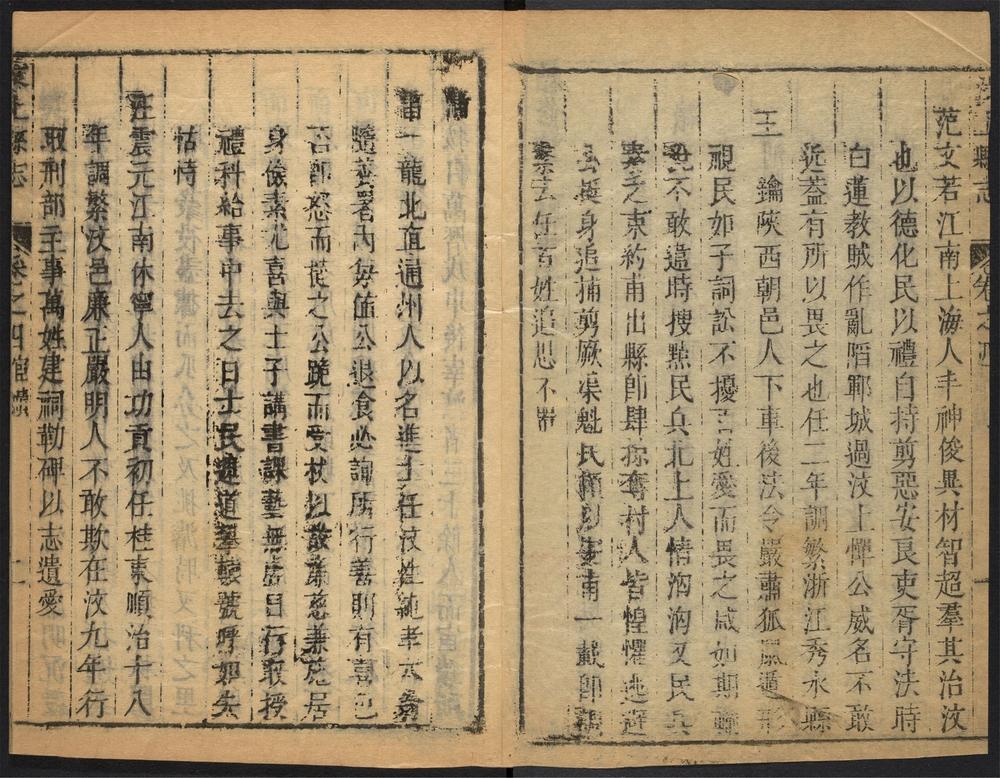 范文若江南上海人丰神俊異材智超羣其治汶
也以德化民以禮自持剪惡安良吏胥守法時
白蓮教賊作亂陷鄆城過汶上憚公威名不敢
近蓋有所以畏之也任二年調繁浙江秀水縣
王 鑰陜西朝邑人下車後法令嚴肅狐鼠遁形
視民如子詞訟不擾百姓愛而畏之咸如期
不敢違時搜㸃民兵北上人情洶洶又民兵
之東約甫出縣卽肆掠奪村人皆惶懼逃避
公挺身追捕剪厥渠魁民一載卽
去任百姓追思不置
清
一龍北直通州人以名進士任汶性純孝太
隨養署內每值公退食必詢所行善則有喜色
否卽怒而撻之公跪而受杖以故兼慈兼施居
身儉素尤喜與士子講書課藝無虛日行取授
禮科給事中去之日士民遮道攀轅號呼如失
怙恃
汪震元江南休寧人由功貢初任桂東順治十八
年調繁汶邑廉正嚴明人不敢欺在汶九年行
取刑部主事萬姓建祠勒碑以志遺愛
上縣志 卷之四宦蹟 二